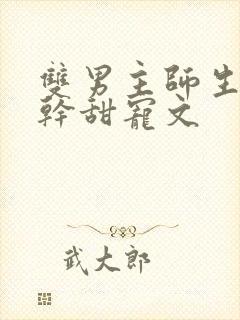 雙男主師生
幹甜寵文
武大郎